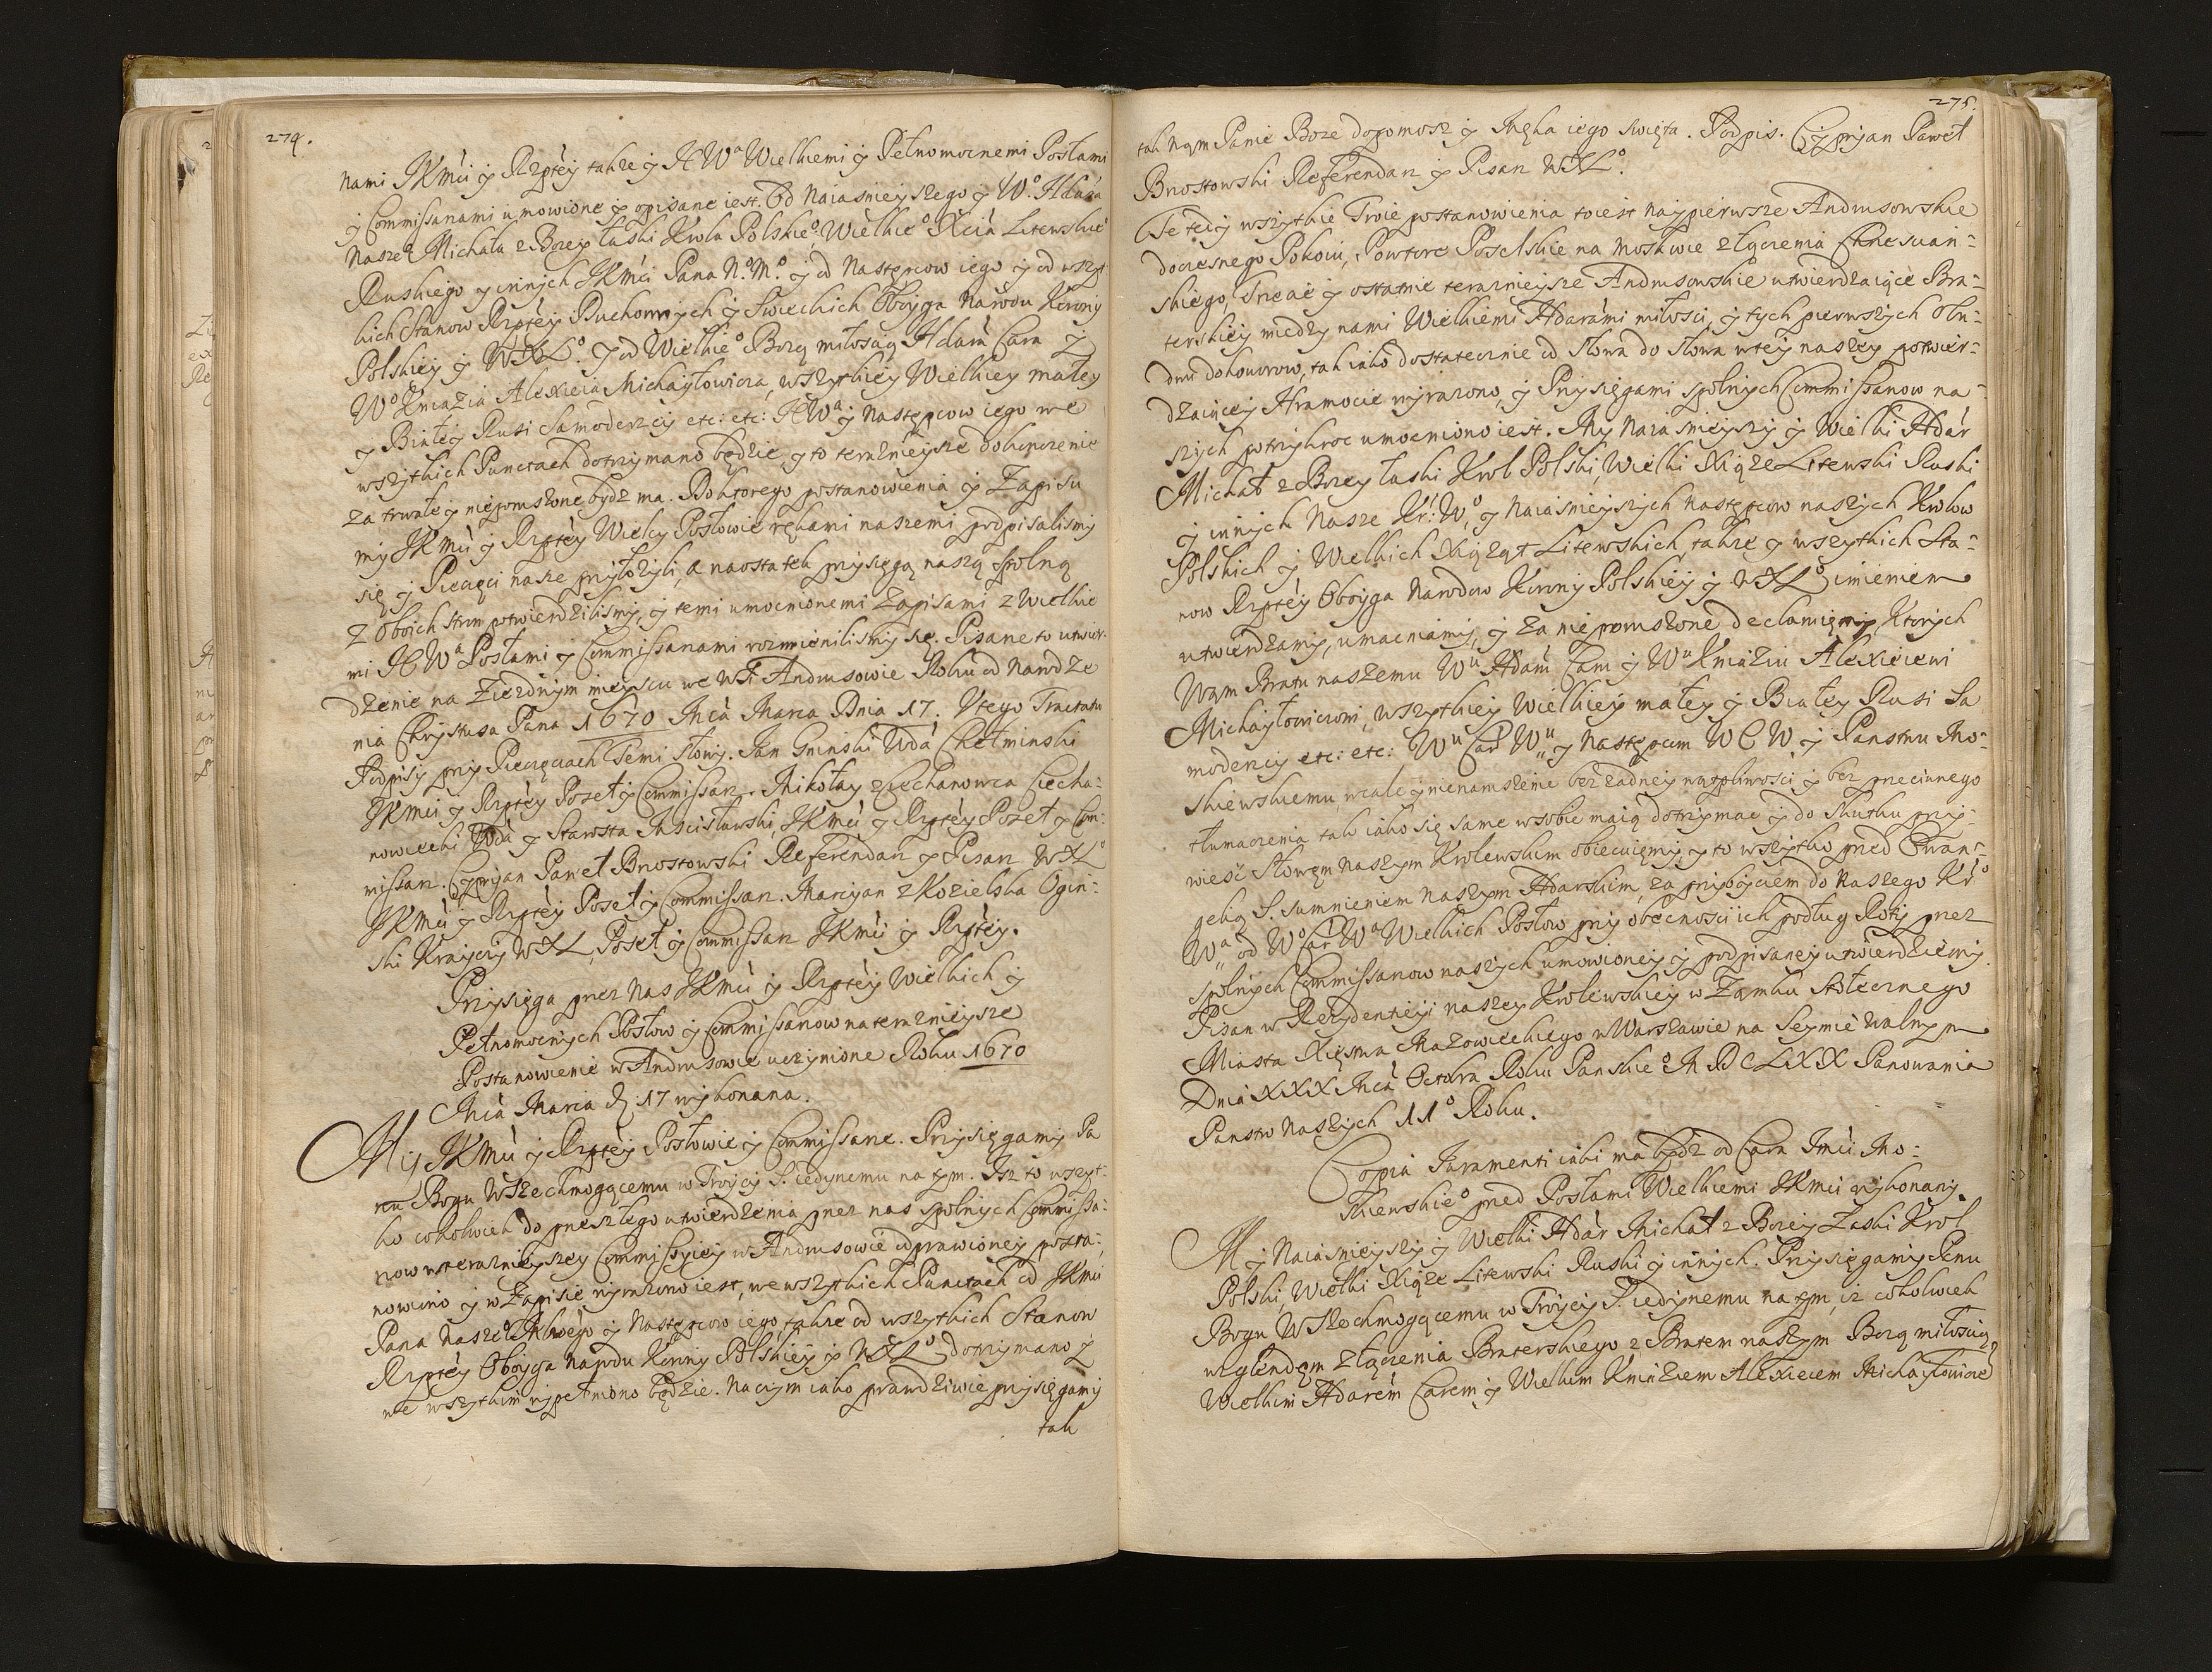 274.
nami JKmći y Rzptéy takze y H Wª Wielkiemi y Pełnomocnemi Posłami
y Commissarzami umowione y opisane iest. Od Naiasnieyszego y Wº Hdara
Naszeº Michała z Bozey łaski Krola Polskieº, Wielkieº Xcia Litewskieº
Ruskiego y innych JKmći Pana Nº Mº y od Następcow iego y od wszyt
kich Stanow Rzptéy Duchownych y Swieckich Oboyga Narodu Korony
Polskiey y WXLº. y od Wielkieº Bozą miłoscią Hdara Cara y
Wº Kniazia Alexieia Michayłowicza, wszytkiey Wielkiey małey
y Białey Rusi Samoderzcy etc: etc: H Wª y Następcow iego we
wszytkich Punctach dotrzymano będzie, y to teraznieysze dokonczenie
za trwałe y nieporuszone bydz ma. Do ktorego postanowienia y Zapisu
my JKmći y Rzptéy Wielcy Posłowie rękami naszemi podpisalismy
się y Pieczęci nasze przyłozyli, a naostatek przysięgą naszą spolną
z oboich stron potwierdzilismy, y temi umocnionemi Zapisami z Wielkie
mi H C Wª Posłami y Commissarzami rozmienilismy się. Pisane to utwier-
dzenie na Ziezdnym mieyscu we wsi Andrusowie Roku od Narodze
nia Chrystusa Pana 1670 Mca Marca Dnia 17. Utego Tractatu
Podpisy przy Pieczęciach Temi słowy. Jan Gninski Wda Chełminski
JKmći y Rzptéy Poseł y Commissarz. Mikołay z Ciechanowca Ciecha-
nowiecki Wda y Starosta Mscisławski, JKmći y Rzptéy Poseł y Com-
missarz. Cyprian Paweł Brzostowski Referendarz y Pisarz WXLº
JKmći y Rzptéy Poseł y Commissarz. Marcyan z Kozielska Ogin-
ski Krayczy WXL, Poseł y Commissarz JKmći y Rzptéy.
Przysięga przez Nas JKmći y Rzptéy Wielkich y
Pełnomocnych Posłow y Commissarzow na teraznieysze
Postanowienie w Andrusowie uczynione Roku 1670
Mca Marca d. 17 wykonana.
My JKmći y Rzptéy Posłowie y Commissarze. Przysięgamy Pa
nu Bogu Wszechmogącemu w Troycy S. iedynemu na tym. Isz to wszyt-
ko cokolwiek do przeszłego utwierdzenia przez nas spolnych Commissa-
rzow w teraznieyszey Commissyiey w Andrusowie odprawioney posta-
nowiono y w Zapisie wyrazono iest, we wszytkich Punctach od JKmći
Pana Naszeº Mściwego y Następcow iego, takze od wszytkich Stanow
Rzptéy Oboyga Narodu Korony Polskiey y WXLº dotrzymano y
we wszytkim wypełniono będzie. Na czym iako prawdziwie przysięgamy
tak
275.
tak Nąm Panie Boze dopomosz y Męka iego swięta. Podpis. Cyprjan Paweł
Brzostowski Referendarz y Pisarz WXLº.
Te tedy wszytkie Troie postanowienia toiest naypierwsze Andrusowskie
doczesnego Pokoiu, Powtore Poselskie na Moskwie złączenia Chrescian-
skiego, Trzecie y ostatnie teraznieysze Andrusowskie utwierdzaiące Bra-
terskiey miedzy nami Wielkiemi Hdarámi miłosci, y tych pierwszych obu-
dwu dokonczow, tak iako dostatecznie od słowa do słowa w tey naszey potwier-
dzaiącey Hramocie wyrazono, y Przysięgami spolnych Commissarzow na-
szych potrzykroc umocniono iest. My Naiasnieyszy y Wielki Hdár
Michał z Bozey łaski Krol Polski, Wielki Xiąze Litewski Ruski
y innych Nasze Kr: Wº, y Naiasnieyszych Następcow naszych Krolow
Polskich y Wielkich Xiążąt Litewskich, takze y wszytkich Sta-
now Rzptéy Oboyga Narodow Korony Polskiey y WXLº imieniem
utwierdzamy, umacniamy, y za nieporuszone declaruiemy, Ktorych
Wąm Bratu naszemu Wu Hdaru Caru y Wu Kniaziu Alexieiewi
Michayłowiczowi, wszytkiey Wielkiey małey y Białey Rusi Sa
moderzcy etc: etc: Wu Car Wu y Następcom W C W y Panstwu Mo-
skiewskiemu, wcale y nienaruszenie bez zadney wątpliwosci y bez przeciwnego
tłumaczenia tak iako się same w sobie maią dotrzymac y do skutku przy-
wiesć Słowęm Naszym Krolewskim obiecuięmy, y to wszytko przed Ewan-
gelią S. sumnieniem Naszym Hdarskim, za przybyciem do Naszego Krº
Wª od Wº Car Wª Wielkich Posłow przy obecnosci ich podług Roty przez
spolnych Commissarzow naszych umowioney y podpisaney utwierdziemy.
Pisan w Rezydentieyi naszey Krolewskiey w Zamku Stołecznego
Miasta Xięstwa Mazowieckiego w Warszawie na Seymie walnym
Dnia XXX Mca Octobra Roku Panskieº M DC LXX Panowania
Panstw Naszych IIº Roku.
Copia Juramenti iaki ma bydz od Cara Jmći Mo-
skiewskieº przed Posłami Wielkiemi JKmći wykonany.
My Naiasnieyszy y Wielki Hdár Michał z Bozey Łaski Krol
Polski, Wielki Xiąze Litewski Ruski y innych. Przysięgamy Panu
Bogu Wszechmogącemu w Troycy S. iedynemu na tym, iz cokolwiek
względęm złączenia Braterskiego z Bratem naszym Bozą miłoscią
Wielkim Hdarém Carem y Wielkim Kniaziem Alexieiem Michayłowicze